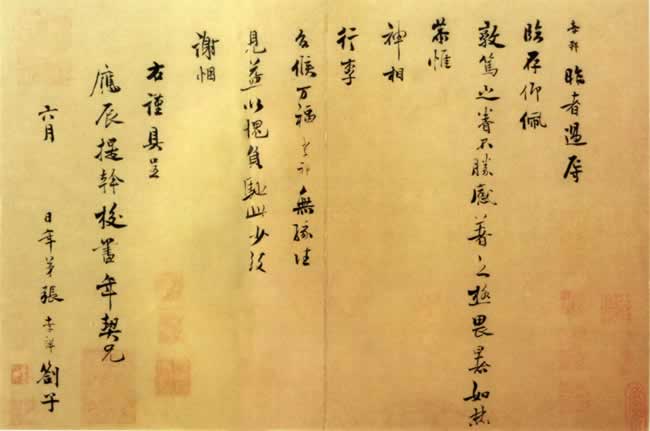 孝祥 昨者過辱
臨存仰佩
敦篤之眷不勝感著之極畏暑如焚
恭惟
神相
行李
台候万福孝祥無緣往
見益以愧負馳此少致
謝悃
右謹具呈
應辰提幹校書年契兄
六月 日年弟張孝祥劄子